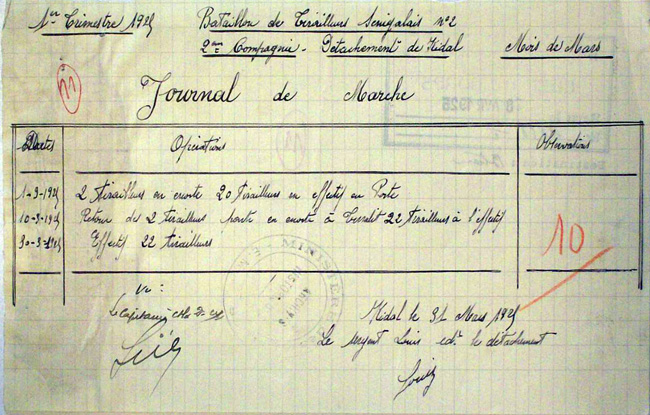 1er Trimestre 1925
Bataillon de Tirailleurs Senegalais n°2
2me Compagnie - Détachement de Kidal
Mois de Mars
11
Journal de Marche
Dates Opérations Observations
1-3-1925 2 tirailleurs en escorte 20 Tirailleurs en effectif en Poste
10-3-1925 Retour des 2 tirailleurs en escorte à Tessalit 22 Tirailleurs à l'effectif
30-3-1925 Effectif 22 tirailleurs
10
MINISTERE
Vu :
Le Capitaine
Kidal le 31 Mars 1925
Le sergent Louis cdt le détachement
Louis